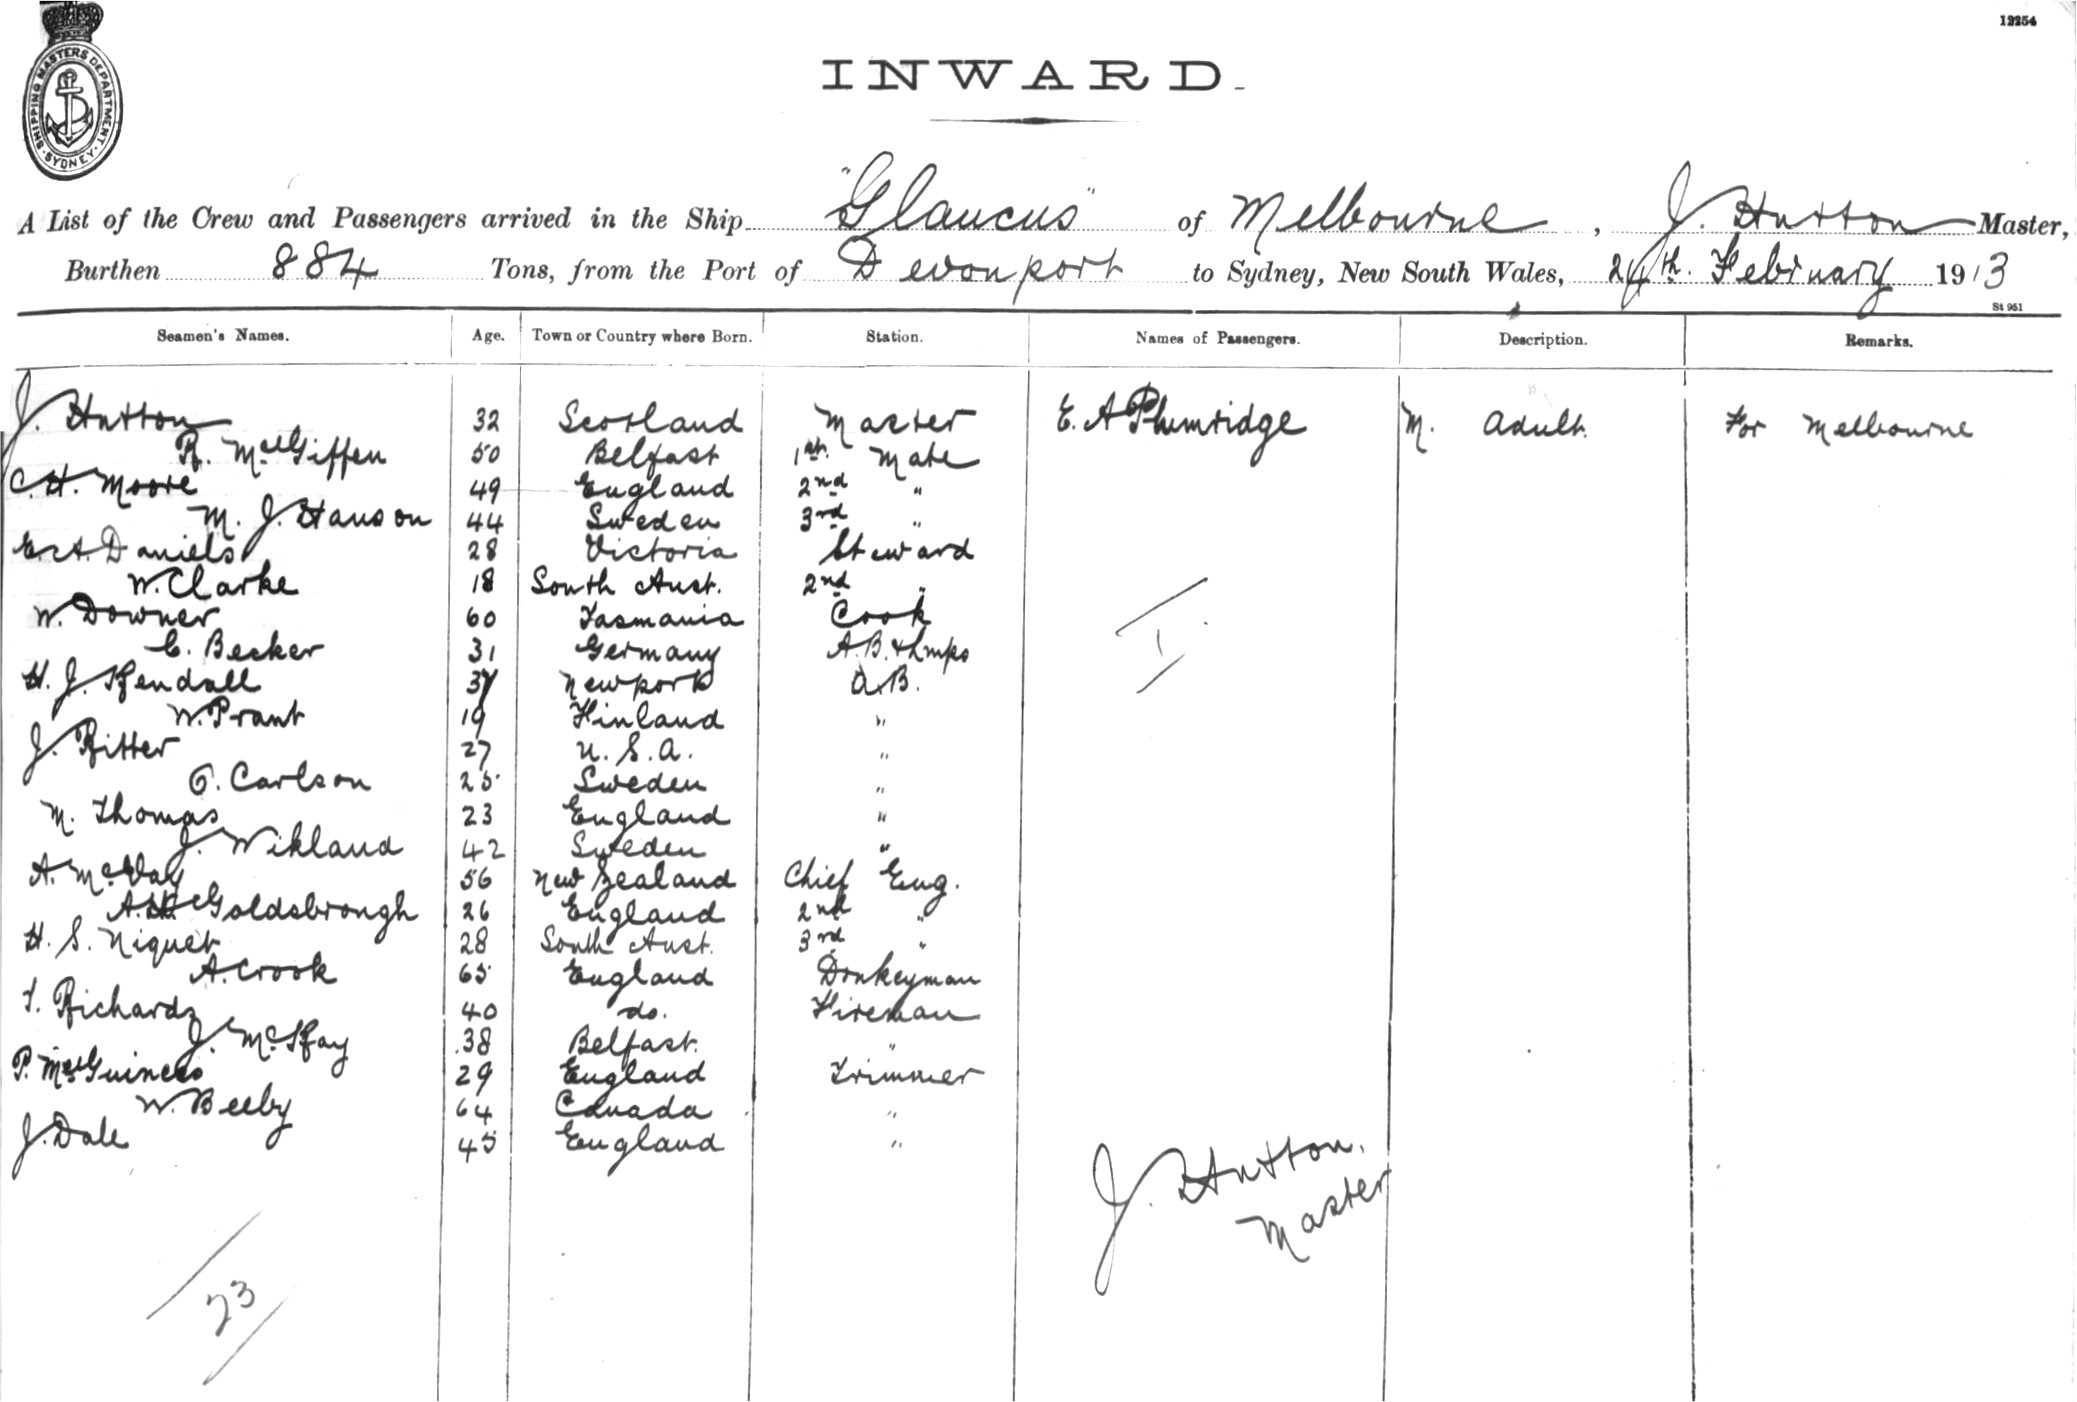 12254
SHIPPING MASTERS DEPARTMENT. SYDNEY
INWARD
A List of the Crew and Passengers arrived in the Ship "Glaucus" of Melbourne, J. Hutton Master,
Burthen 884 Tons, from the Port of Devonport to Sydney, New South Wales, 24th February 1913
St 951
Seamen's Names. Age. Town or Country where Born. Station. Names of Passengers. Description. Remarks.
J. Hutton 32 Scotland Master E. A Plumridge M. Adult. For Melbourne
R. McGiffen 50 Belfast 1st. Mate
C. H. Moore 49 England 2nd "
M. J. Hanson 44 Sweden 3rd "
E. A. Daniels 28 Victoria Steward
W. Clarke 18 South Aust. 2nd "
W. Downer 60 Tasmania Cook
C. Becker 31 Germany A.B. & Lmps
H. J. Kendall Newport A.B.
W. Prant 19 Finland "
J. Ritter 27 U.S.A. "
Carlson 25 Sweden "
M. Thomas 23 England "
J. Wikland 42 Sweden "
A. 56 New Zealand Chief Eng.
Goldsbrough 26 England 2nd "
H. S. Niquet 28 South Aust. 3rd "
A. Crook 65 England Donkeyman
T. Richards 40 do. Fireman
J. McKay 38 Belfast. "
P. McGuiness 29 England Trimmer
W. Beeby 64 Canada "
J. Dale 45 England "
1
J. Hutton.
Master
23